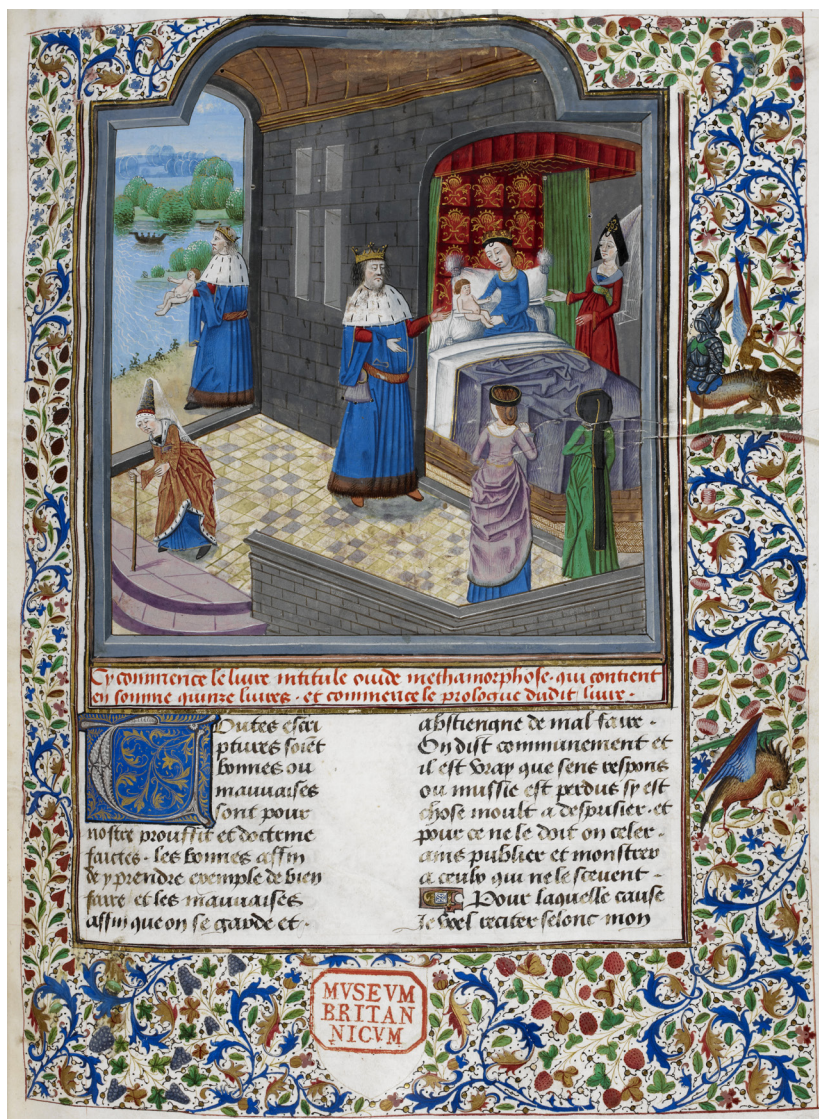 Cy commence le liure intitule ouide methamorphose · qui contient
en somme quinze liures · et commence le prologue dudit liure ·
Toutes escri
ptures soiet
bonnes ou
mauuaises
sont pour
nostre prouffit et doctrine
faictes · les bonnes affin
de y prendre exemple de bien
faire et les mauuaises
affin que on se garde et ·
abstiengne de mal faire ·
On dist communement et
il est vray que sens respons
ou mussie est perdus sy est
chose moult a desprisier · et
pour ce ne le doit on celer ·
ains publier et monstrer
a ceulx qui ne le sceuent ·
Pour laquelle cause
Je voel reciter selonc mon
MVSEVM
BRITAN
NICVM